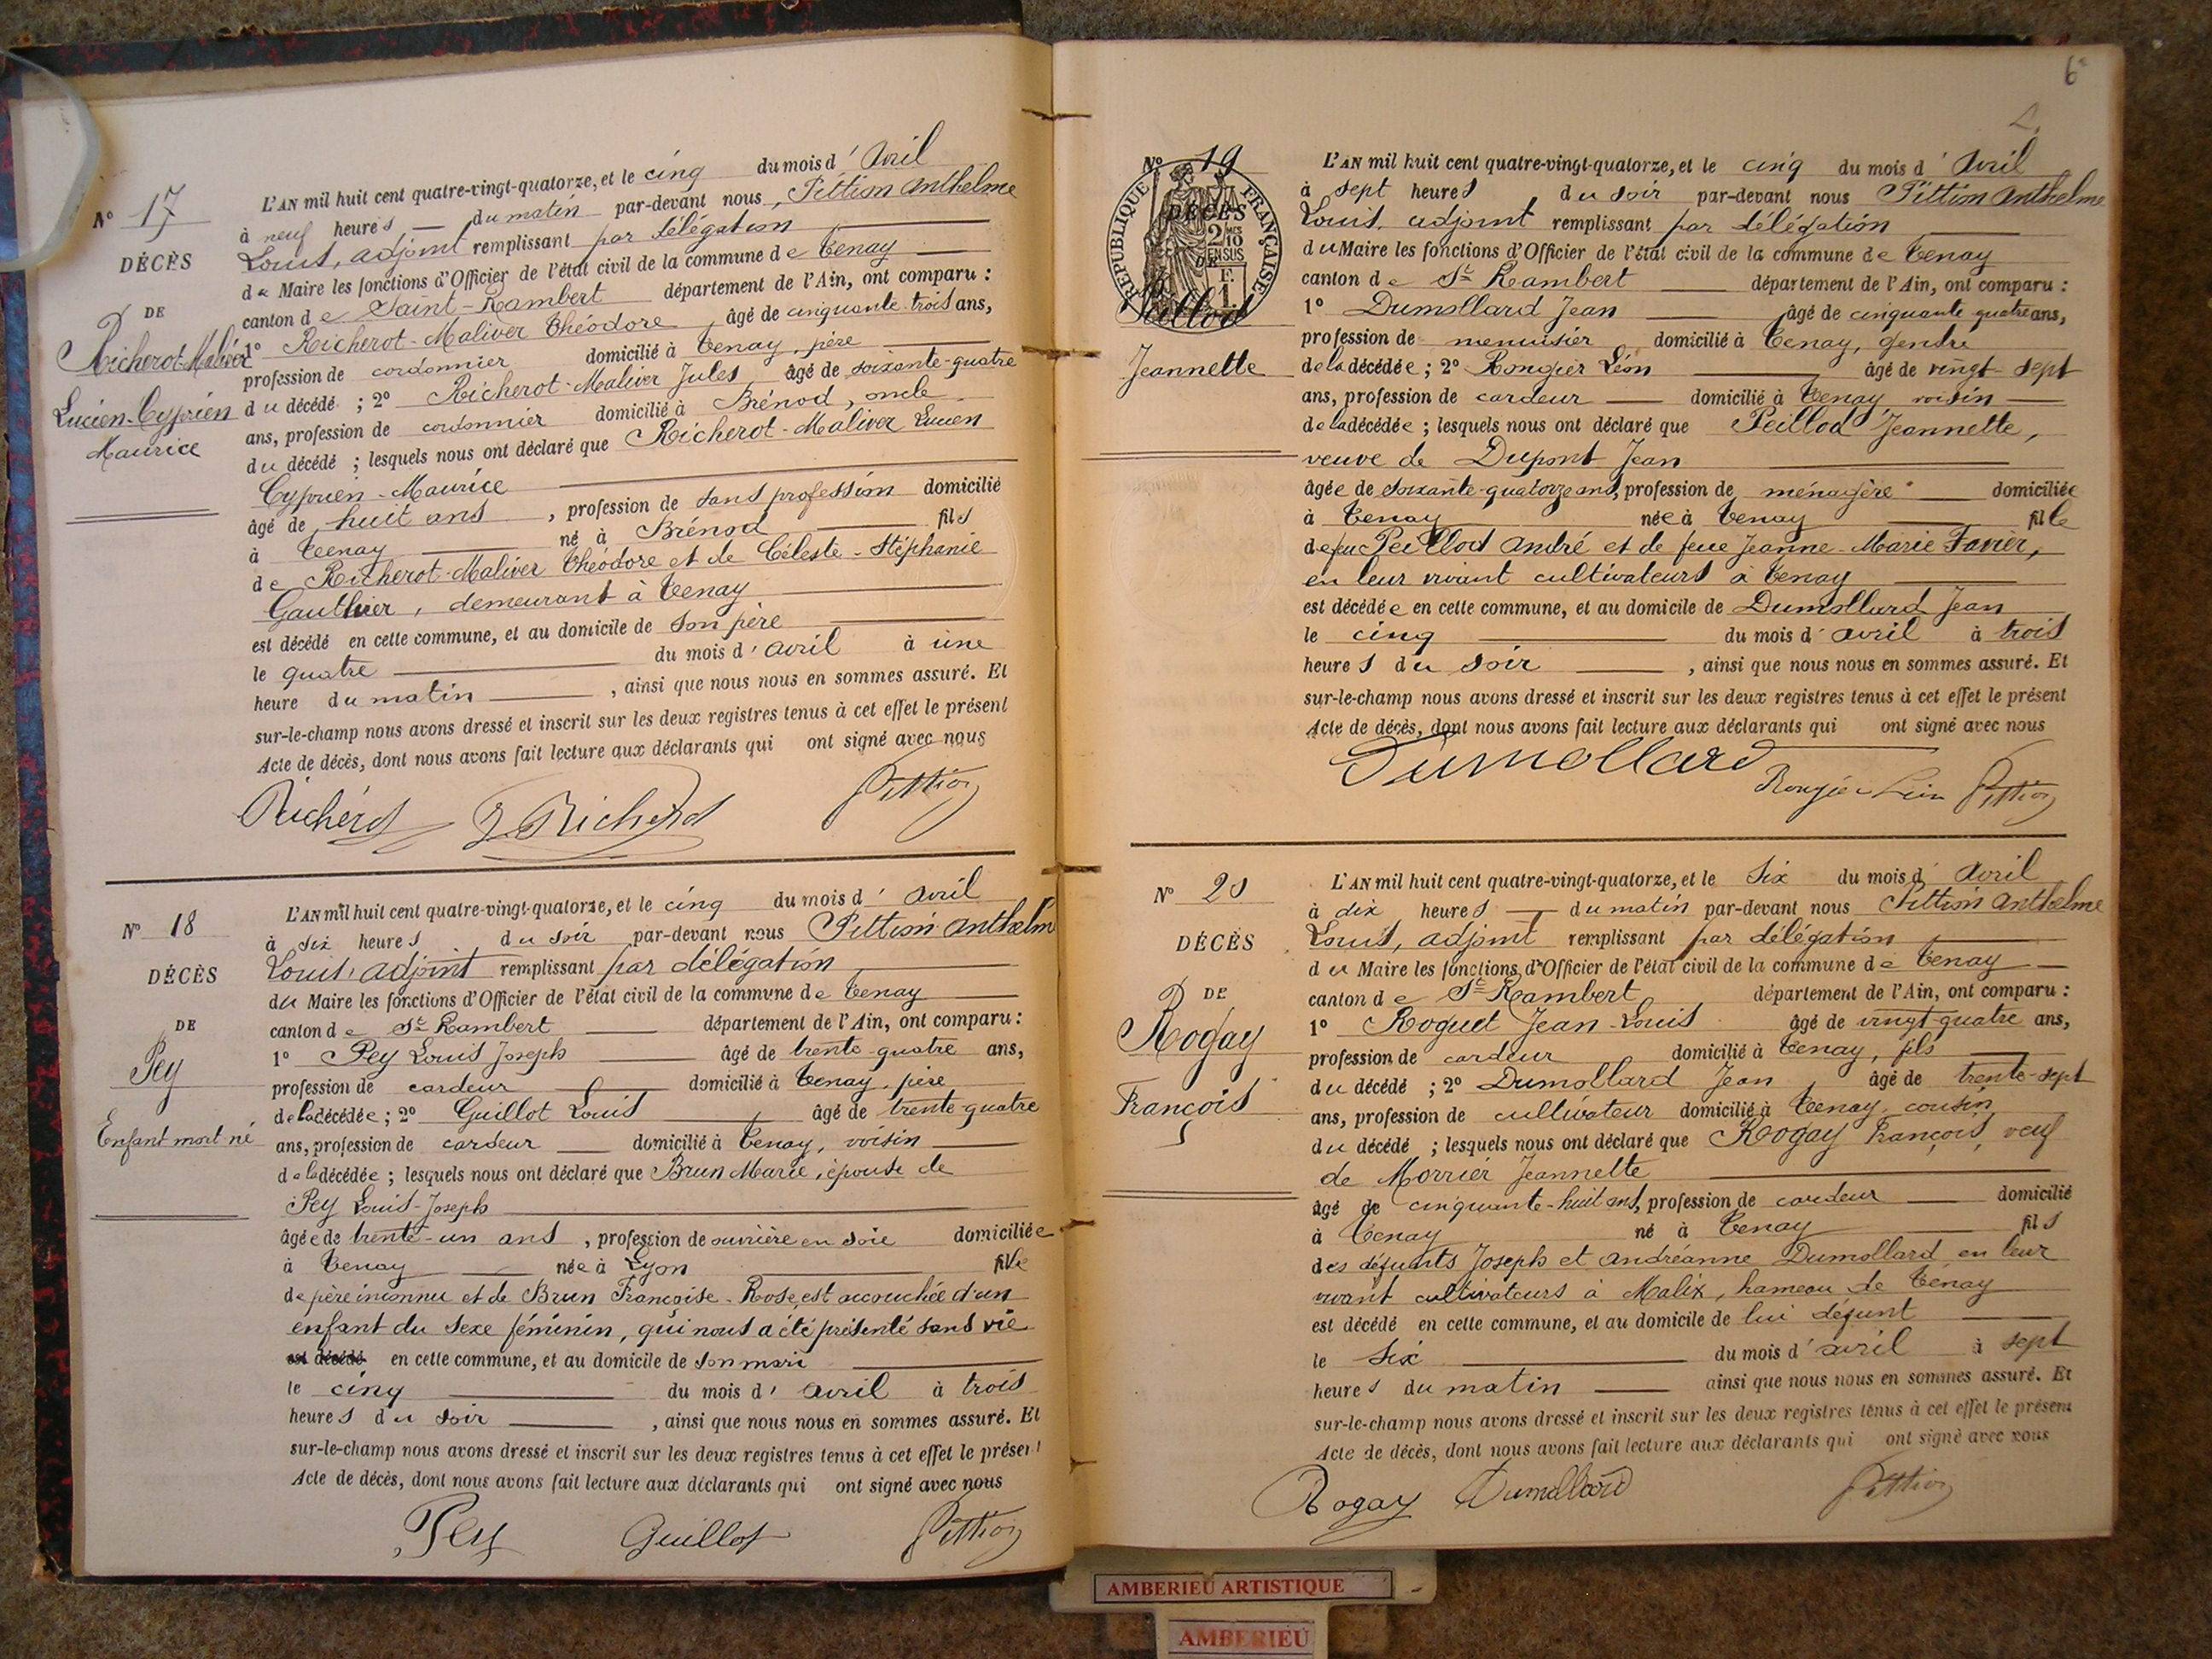 N° 17
DÉCÈS
DE
Richerot-Maliver
Lucien-Cyprien
Maurice
L'AN mil huit cent quatre-vingt-quatorze, et le cinq du mois d'Avril
à neuf heures du matin par-devant nous, Pittion Anthelme
Louis, adjoint remplissant par délégation
du Maire les fonctions d'Officier de l'état civil de la commune de Tenay
canton de Saint-Rambert département de l'Ain, ont comparu :
1° Richerot-Maliver Théodore, âgé de cinquante-trois ans,
profession de cordonnier domicilié à Tenay, père
du décédé ; 2° Richerot-Maliver Jules âgé de soixante-quatre
ans, profession de cordonnier domicilié à Brénod, oncle
du décédé ; lesquels nous ont déclaré que Richerot-Maliver Lucien
Cyprien-Maurice
âgé de huit ans, profession de sans profession domicilié
à Tenay né à Brénod fils
de Richerot-Maliver Théodore et de Céleste-Stéphanie
Gauthier, demeurant à Tenay
est décédé en cette commune, et au domicile de son père
le quatre du mois d'avril à une
heure du matin, ainsi que nous nous en sommes assuré. Et
sur-le-champ nous avons dressé et inscrit sur les deux registres tenus à cet effet le présent
Acte de décès, dont nous avons fait lecture aux déclarants qui ont signé avec nous
Pittion
N° 18
DÉCÈS
DE
Pey
Enfant mort né
L'AN mil huit cent quatre-vingt-quatorze, et le cinq du mois d'Avril
à six heures du soir par-devant nous Pittion Anthelm
Louis, adjoint remplissant par délégation
du Maire les fonctions d'Officier de l'état civil de la commune de Tenay
canton de St Rambert département de l'Ain, ont comparu :
1° Pey Louis Joseph âgé de trente-quatre ans,
profession de cardeur domicilié à Tenay, père
de la décédée ; 2° Guillot Louis, âgé de trente-quatre
ans, profession de cardeur domicilié à Tenay, voisin
de la décédée ; lesquels nous ont déclaré que Brun Marie, épouse de
Pey Louis-Joseph
âgée de trente-un ans, profession de ouvrière en soie domiciliée
à Tenay née à Lyon fille
de père inconnu et de Brun Françoise-Rose, est accouchée d'un
enfant du sexe féminin, qui nous a été présenté sans vie
est décédé en cette commune, et au domicile de son mari
le cinq du mois d'avril à trois
heures du soir, ainsi que nous nous en sommes assuré. Et
sur-le-champ nous avons dressé et inscrit sur les deux registres tenus à cet effet le présent
Acte de décès, dont nous avons fait lecture aux déclarants qui ont signé avec nous
Pey Guillot Pittion
6
N° 19
RÉPUBLIQUE FRANÇAISE
DÉCÈS
DE
Peillod
Jeannette
L'AN mil huit cent quatre-vingt-quatorze, et le cinq du mois d'Avril
à sept heures du soir par-devant nous Pittion Anthelme
Louis, adjoint remplissant par délégation
du Maire les fonctions d'Officier de l'état civil de la commune de Tenay
canton de St Rambert département de l'Ain, ont comparu :
1° Dumollard Jean âgé de cinquante quatre ans,
profession de menuisier domicilié à Tenay, gendre
de la décédée ; 2° Rongier Léon âgé de vingt-sept
ans, profession de cardeur domicilié à Tenay voisin
de la décédée ; lesquels nous ont déclaré que Peillod Jeannette,
veuve de Dupont Jean
âgée de soixante-quatorze ans, profession de ménagère domiciliée
à Tenay née à Tenay fille
de feu Peillod André et de feue Jeanne-Marie Favier,
en leur vivant cultivateurs à Tenay
est décédée en cette commune, et au domicile de Dumollard Jean
le cinq du mois d'avril à trois
heures du soir, ainsi que nous nous en sommes assuré. Et
sur-le-champ nous avons dressé et inscrit sur les deux registres tenus à cet effet le présent
Acte de décès, dont nous avons fait lecture aux déclarants qui ont signé avec nous
Dumollard Rongier Léon Pittion
N° 20
DÉCÈS
DE
Rogay
François
L'AN mil huit cent quatre-vingt-quatorze, et le Six du mois d'Avril
à dix heures du matin par-devant nous Pittion Anthelme
Louis, adjoint remplissant par délégation
du Maire les fonctions d'Officier de l'état civil de la commune de Tenay
canton de St Rambert département de l'Ain, ont comparu :
1° Roguet Jean-Louis âgé de vingt-quatre ans,
profession de cardeur domicilié à Tenay, fils
du décédé ; 2° Dumollard Jean, âgé de trente-sept
ans, profession de cultivateur domicilié à Tenay, cousin
du décédé ; lesquels nous ont déclaré que Rogay François, veuf
de Morrier Jeannette
âgé de cinquante-huit ans, profession de cardeur domicilié
à Tenay né à Tenay fils
des défunts Joseph et Andréanne Dumollard en leur
vivant cultivateurs à Malix, hameau de Tenay
est décédé en cette commune, et au domicile de lui défunt
le Six du mois d'avril à sept
heures du matin ainsi que nous nous en sommes assuré. Et
sur-le-champ nous avons dressé et inscrit sur les deux registres tenus à cet effet le présent
Acte de décès, dont nous avons fait lecture aux déclarants qui ont signé avec nous
Rogay Dumollard Pittion
AMBERIEU ARTISTIQUE
AMBERIEU